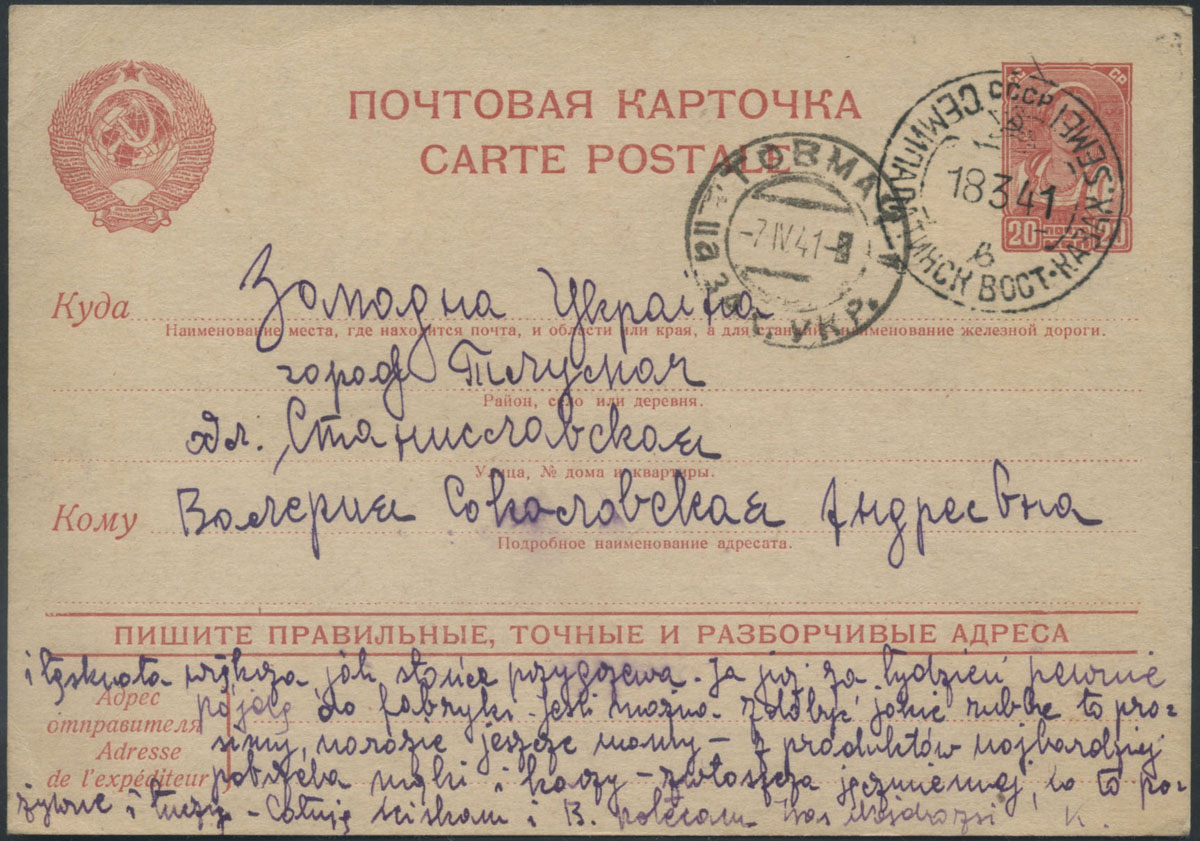 ПОЧТОВАЯ КАРТОЧКА
CARTE POSTALE
СССР
СЕМИПАЛАТИНСК ВОСТ·КАЗ
SEMEI
18 3 41
ТОВМАЧ
-7 IV 41-
УКР
20 20
Куда Западна Украіна
Наименование места, где находится почта, и области или края, а для станций наименование железной дороги.
город Тлумач
Район, село или деревня.
Ул. Станиславская
Улица, № дома и квартиры.
Кому Валерия Соколовская Андреевна
Подробное наименование адресата.
ПИШИТЕ ПРАВИЛЬНЫЕ, ТОЧНЫЕ И РАЗБОРЧИВЫЕ АДРЕСА
Адрес
отправителя
Adresse
de l'expéditeur
i tęsknota większa jak słońce przygrzewa. Ja już za tydzień pewnie
pójdę do fabryki. Jeśli można zdobyć jakie ruble to pro-
simy, narazie jeszcze mamy – z produktów najbardziej
potrzeba mąki i kaszy – zwłaszcza jęczmiennej, bo to po-
żywne i tuczy – Całuję ściskam i B. polecam Was Najdrożsi K.